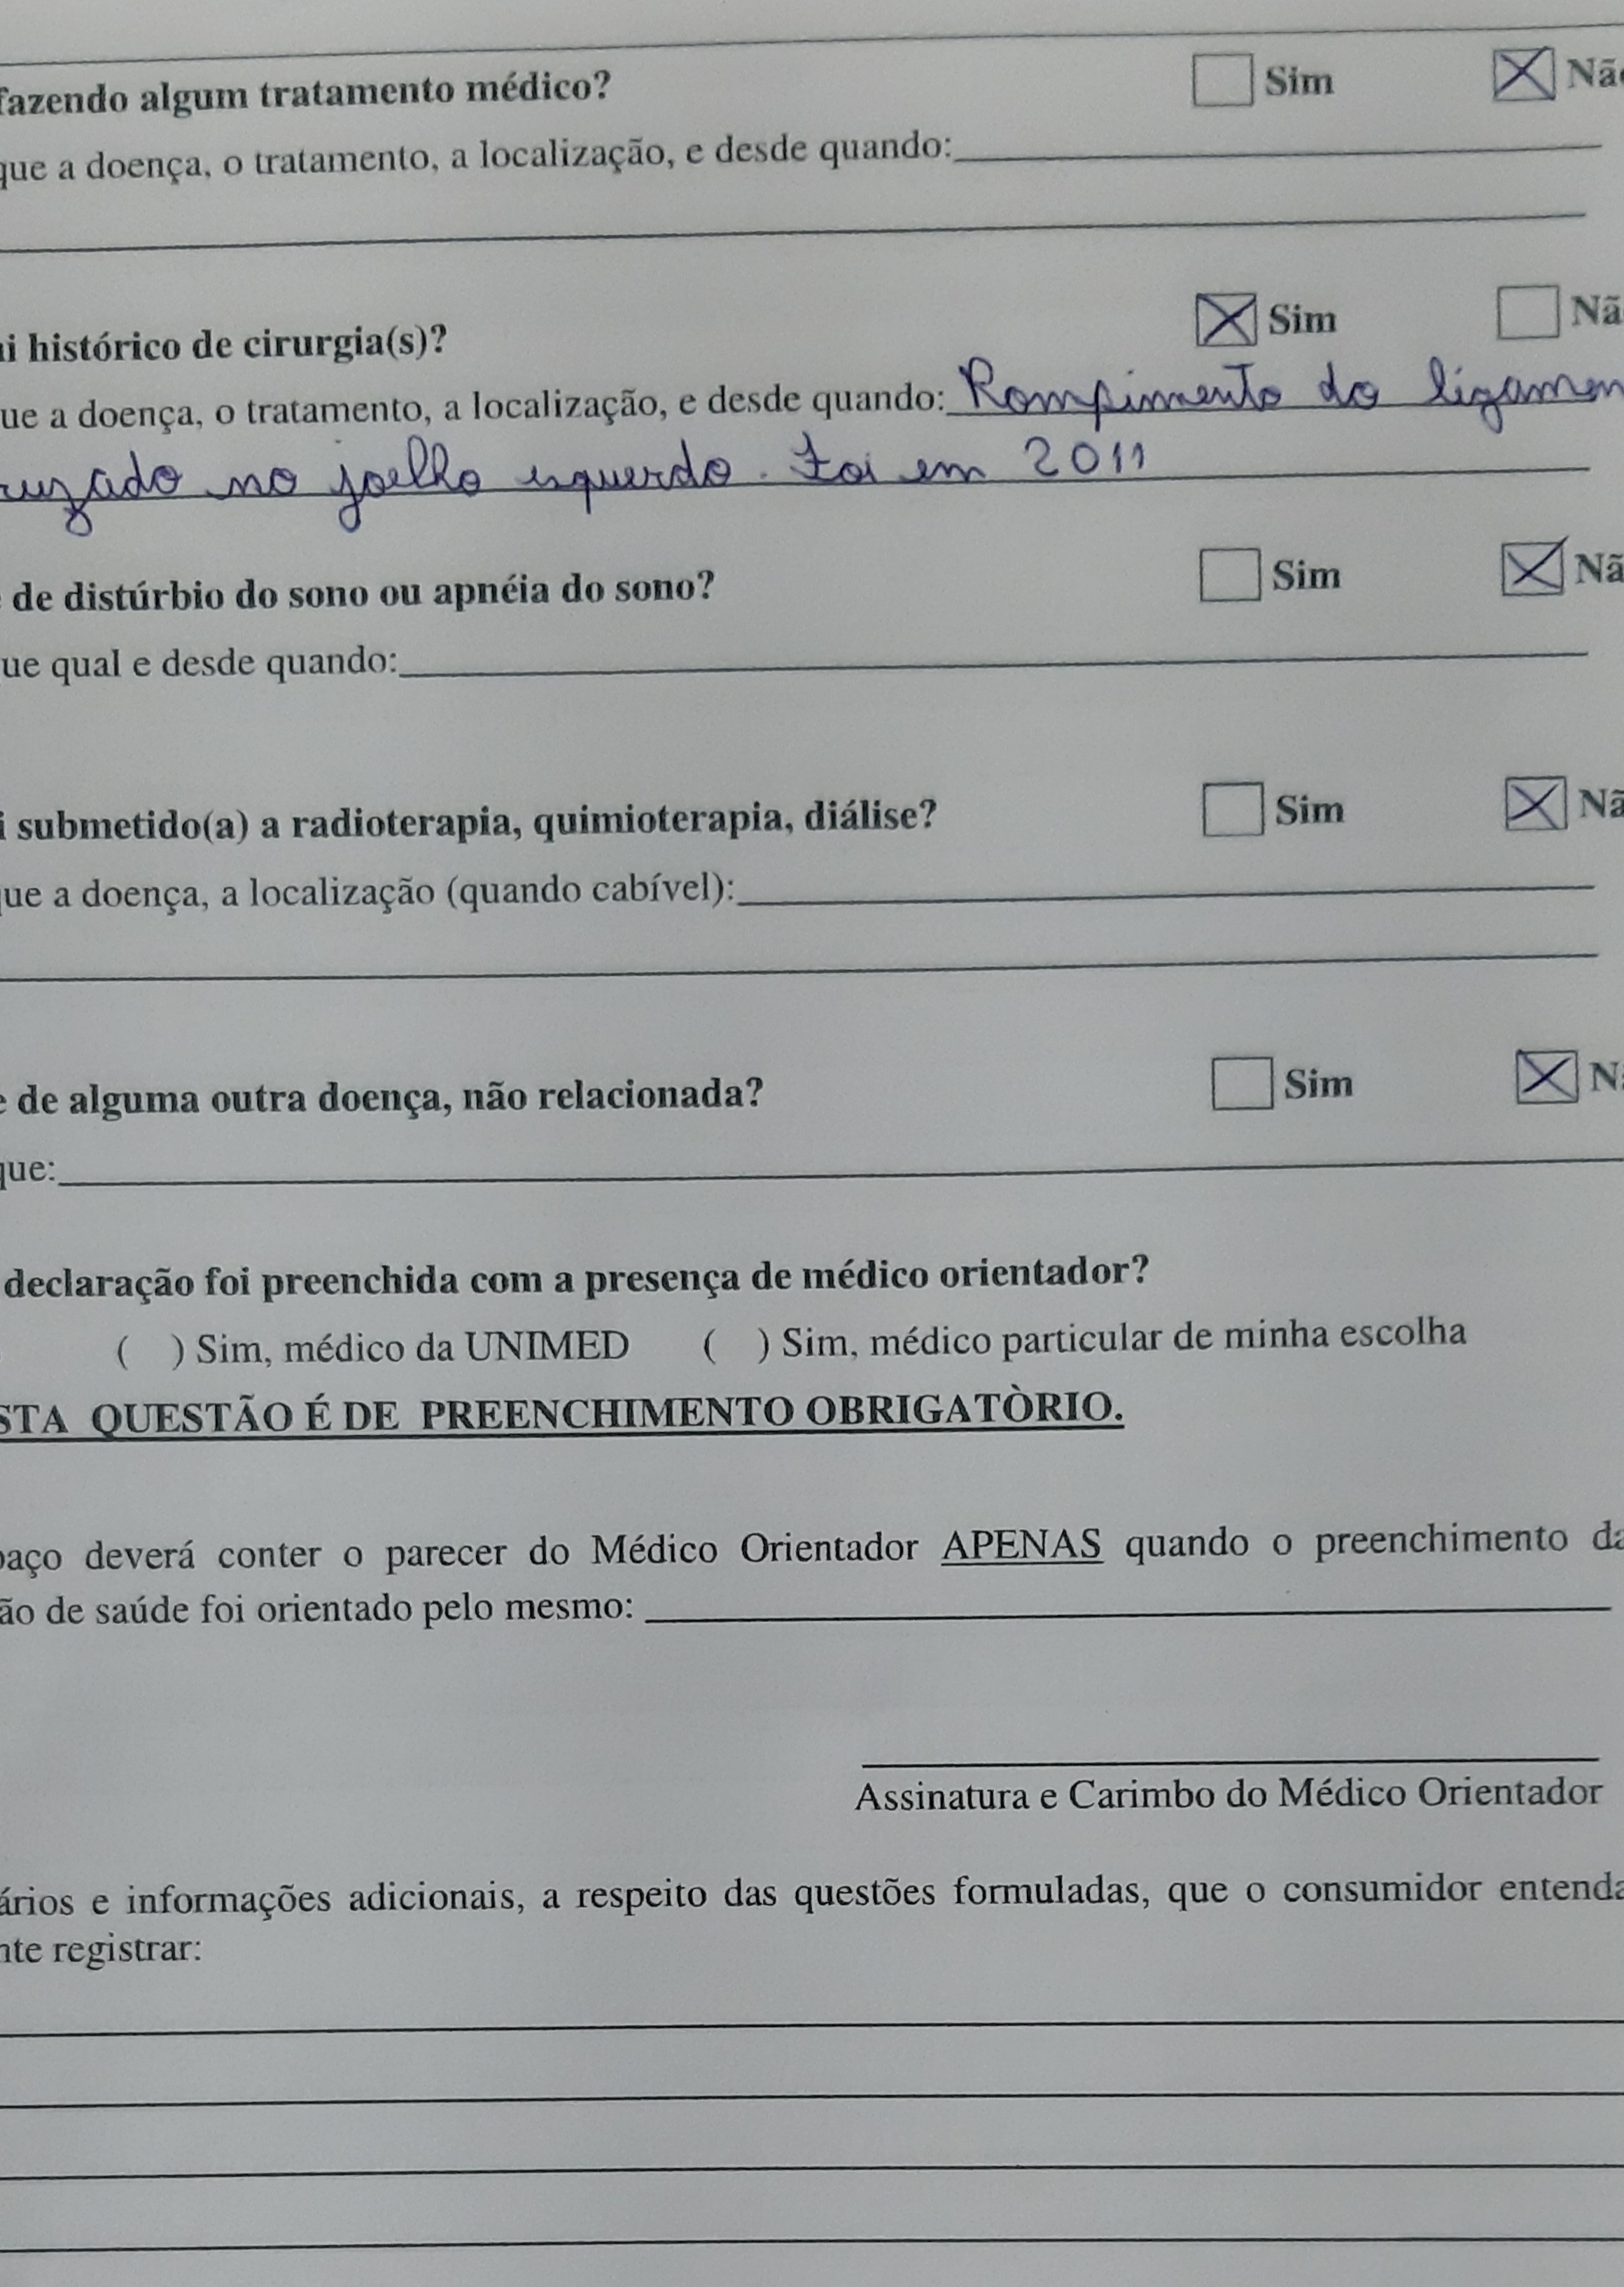 fazendo algum tratamento médico? Sim Não
que a doença, o tratamento, a localização, e desde quando:
ui histórico de cirurgia(s)? Sim Nã
ue a doença, o tratamento, a localização, e desde quando: Rompimento do ligamen
ruzado no joelho esquerdo. Foi em 2011
e de distúrbio do sono ou apnéia do sono? Sim Nã
ue qual e desde quando:
i submetido(a) a radioterapia, quimioterapia, diálise? Sim Nã
que a doença, a localização (quando cabível):
e de alguma outra doença, não relacionada? Sim Nã
que:
declaração foi preenchida com a presença de médico orientador?
( ) Sim, médico da UNIMED ( ) Sim, médico particular de minha escolha
STA QUESTÃO É DE PREENCHIMENTO OBRIGATÒRIO.
paço deverá conter o parecer do Médico Orientador APENAS quando o preenchimento da
ão de saúde foi orientado pelo mesmo:
Assinatura e Carimbo do Médico Orientador
ários e informações adicionais, a respeito das questões formuladas, que o consumidor entenda
nte registrar: